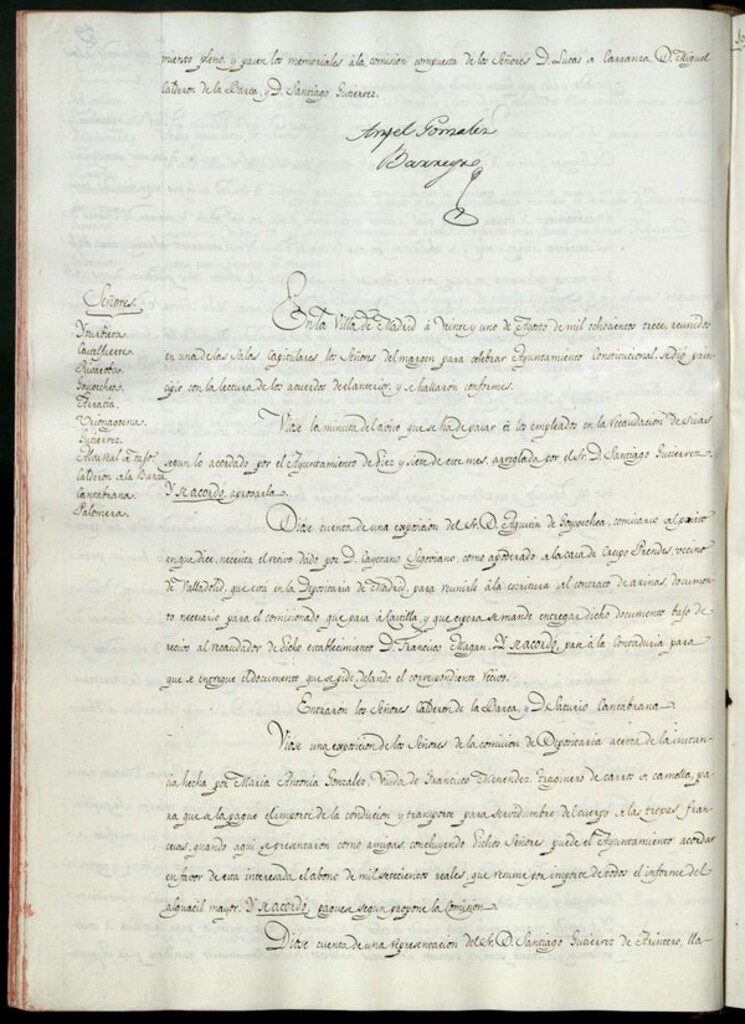 miento pleno, y pasen los memoriales á la comision compuesta de los Señores D. Lucas de Carranza, D. Miguel
Calderon de la Barca, y D. Santiago Gutierrez.
Angel Gonzalez
Barreyro
Señores.
Yturbieta.
Castelfuerte.
Goycoechea.
Arratia.
Gutierrez.
Calderon de la Barca
Cantabrana.
Palomera.
En la Villa de Madrid á veinte y uno de Agosto de mil ochocientos trece, reunidos
en una de las Salas Capitulares los Señores del margen para celebrar Ayuntamiento Constitucional, se dió prin-
cipio con la lectura de los acuerdos del anterior, y se hallaron conformes.
Vióse la minuta del aviso que se ha de pasar á los empleados en la recaudacion de sisas
segun lo acordado por el Ayuntamiento de Diez y siete de este mes, arreglada por el Sr. D. Santiago Gutierrez.
Y se acordó, aprovarla.
Dióse cuenta de una exposicion del Sr. D. Agustin de Goycoechea, comisario del posito
en que dice, necesita el recivo dado por D. Cayetano Segoviano, como apoderado de la casa de Crespo Prendes, vecino
de Valladolid, que está en la Depositaria de Madrid, para reunirle á la escritura del contrato de arinas, documen-
to necesario para el comisionado que pasa á Castilla, y que espera se mande entregar dicho documento bajo de
recivo al recaudador de dicho establecimiento D. Francisco Magan. Y se acordó, pase á la Contaduria para
que se entregue el documento que se pide, dejando el correspondiente recivo.
Entraron los Señores Calderon de la Barca, y D. Saturio Cantabrana.
Vióse una exposicion de los Señores de la comision de Depositaria acerca de la instan-
cia hecha por Maria Antonia Gonzalez, Viuda de Francisco Menendez, traginero de carros de camella, pa-
ra que se la pague el importe de la conducion y transporte para servidumbre del cuerpo de las tropas fran-
cesas, quando aqui se presentaron como amigas, concluyendo dichos Señores puede el Ayuntamiento acordar
en favor de esta interesada el abono de mil setecientos reales, que resume por importe de todos el informe del
alguacil mayor. Y se acordó, paguese segun propone la Comision.
Dióse cuenta de una representacion del Sr. D. Santiago Gutierrez de Arintero, lla-